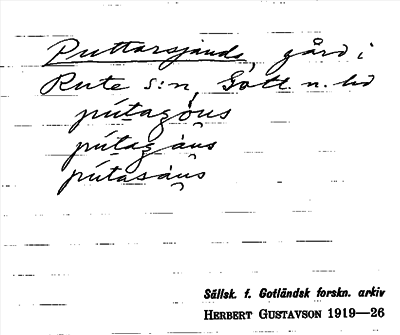 Puttersjaus, gård i
Rute s:n, Gotl. n. hd
pútagȯus
pútagȧus
pútasȧus
Sällsk. f. Gotländsk forskn. arkiv
HERBERT GUSTAVSON 1919—26